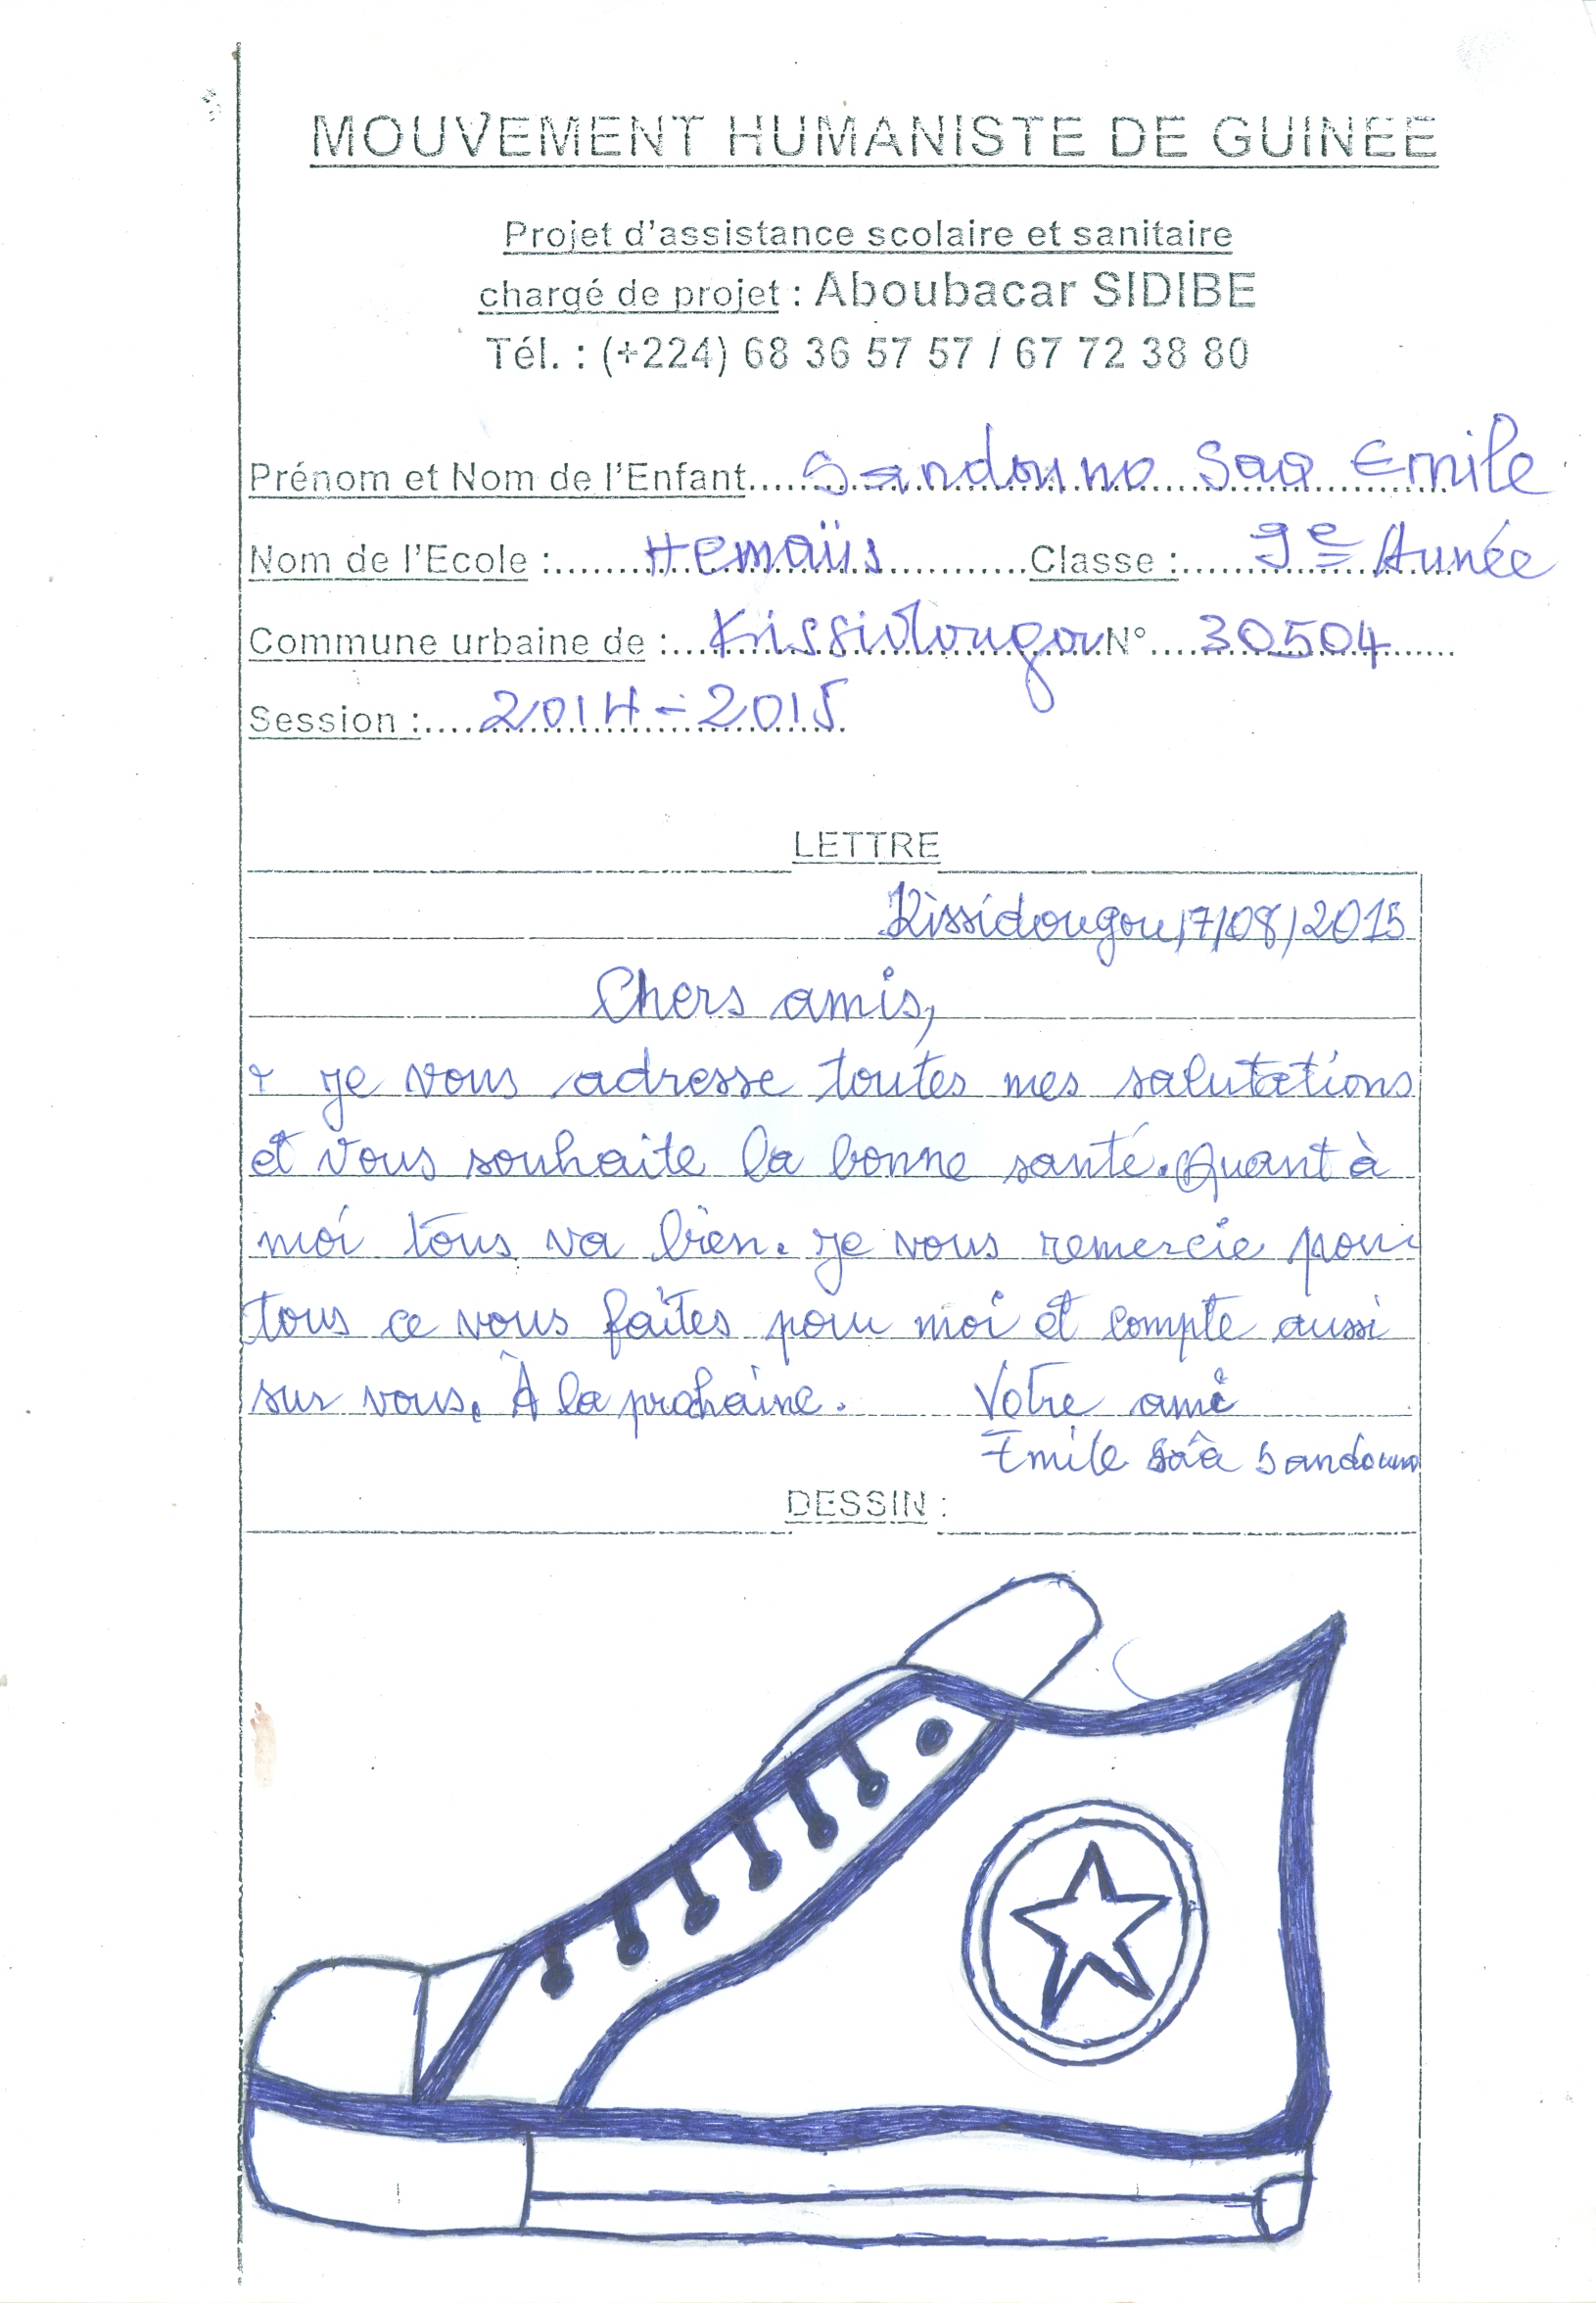 MOUVEMENT HUMANISTE DE GUINEE
Projet d'assistance scolaire et sanitaire
chargé de projet : Aboubacar SIDIBE
Tél. : (+224) 68 36 57 57 / 67 72 38 80
Prénom et Nom de l'Enfant.....Sandouno Saa Emile
Nom de l'Ecole :.....Hemaüs.....Classe :.....9e Année
Commune urbaine de :...Kissidougou N°...30504.....
Session :....2014-2015
LETTRE
Kissidougou,17/08/2015
Chers amis,
je vous adresse toutes mes salutations
et vous souhaite la bonne santé. Quant à
moi tous va bien. je vous remercie pour
tous ce vous faites pour moi et compte aussi
sur vous. À la prohaine. Votre ami
Emile Saâ Sandouno
DESSIN :